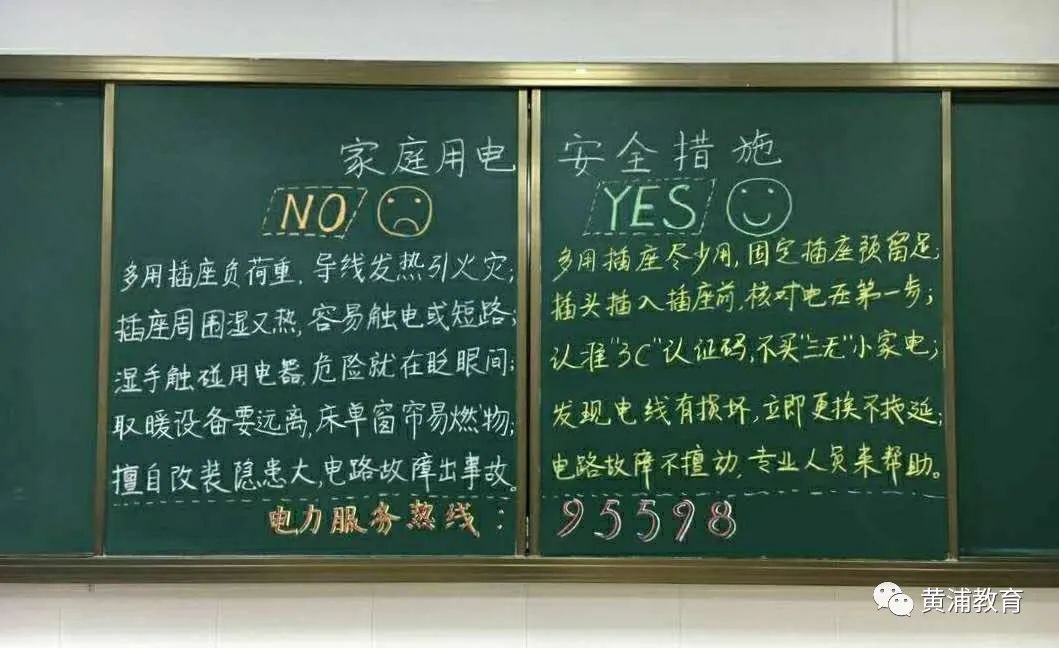 家庭用电安全措施
NO
多用插座负荷重,导线发热引火灾;
插座周围湿又热,容易触电或短路;
湿手触碰用电器,危险就在眨眼间;
取暖设备要远离,床单窗帘易燃物;
擅自改装隐患大,电路故障出事故。
YES
多用插座尽少用,固定插座预留足;
插头插入插座前,核对电压第一步;
认准"3C"认证码,不买"三无"小家电;
发现电线有损坏,立即更换不拖延;
电路故障不擅动,专业人员来帮助。
电力服务热线:95598
黄浦教育